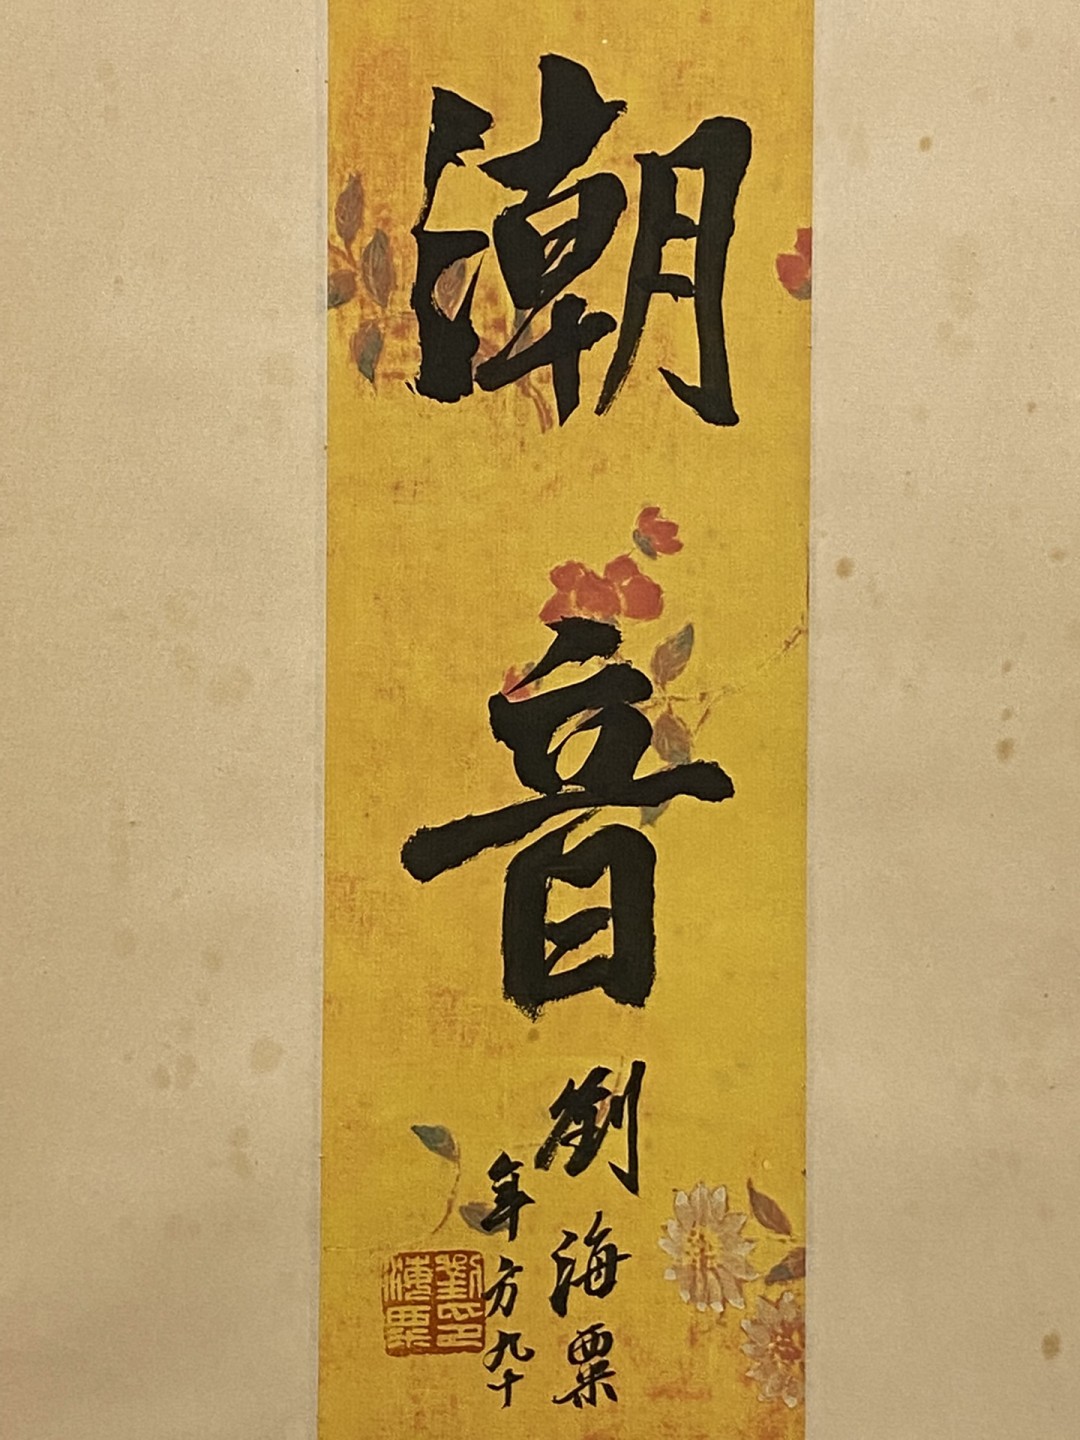 潮音
劉海粟
年方九十
劉海粟印